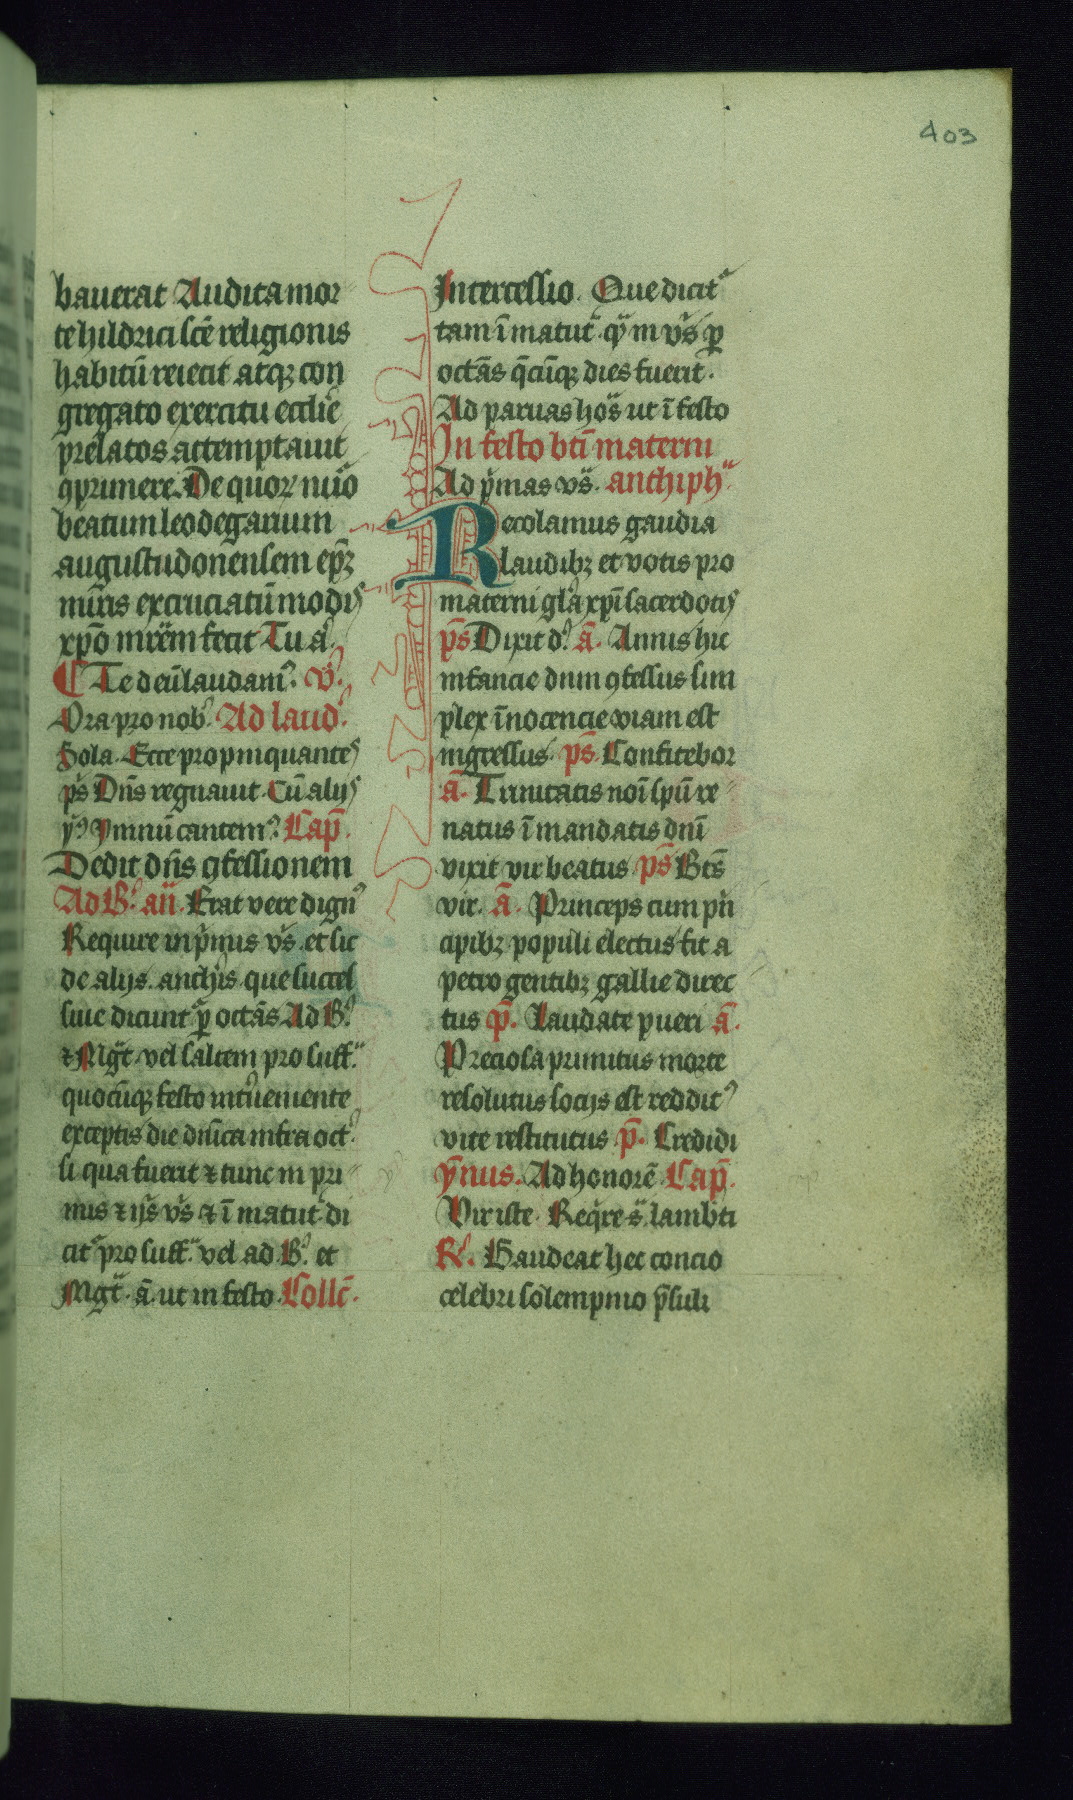 403
bauerat Audita mor
te hildrici scē religionis
habitū reiecit atqꝫ con
gregato exercitu ecclie
prelatos attemptauit
ꝯprimere. De quoꝝ nūo
beatum leodegarium
augustudonensem ep̄ꝫ
miris excruciatū modis
xp̄o mr̄em fecit Tu a.
Te deū laudamꝰ. v̄.
Ora pro nob. Ad laud.
Sola. Ecce propinquantes
ps Dn̄s regnauit. Cū alijs
yꝰ ymnū cantemꝰ. Cap̄.
Dedit dn̄s ꝯfessionem
Ad B. an̄. Erat vere dignꝰ
Require in pͥmis vs̄. et sic
de alijs. anthis. que succes
siue dicunt p octās Ad B.
⁊ Mgt̄. vel saltem pro suff.
quocūqꝫ festo inťueniente
exceptis die dn̄ica infra oct.
si qua fuerit ⁊ tunc in pri
mis ⁊ ijs vs̄ ⁊ ī matut di
cit pro suff. vel ad B. et
Mgt̄. ā. ut in festo. Coll̄c.
Intercessio. Que dicit
tam ī matut. qͣ in vs̄ p
octās q̄cūqꝫ dies fuerit.
Ad paruas hos ut ī festo
In festo bt̄i materni
Ad pͥmas vs̄. anthiph.
Recolamus gaudia
laudibꝫ et votis pro
materni gl̄a xp̄i sacerdotis
ps̄ Dixit d. ā. Annis hic
infancie dum ꝯfessus sim
plex īnocencie viam est
ingressus. ps̄. Confitebor
ā. Trinitatis noī spū re
natus ī mandatis dn̄i
vixit vir beatus ps̄ Bt̄s
vir. ā. Princeps cum prī
cipibꝫ populi electus fit a
petro gentibꝫ gallie direc
tus p̄. Laudate pueri ā.
Preciosa primitus morte
resolutus socijs est redditꝰ
vite restitutus p̄. Credidi
ȳnus. Ad honorē Cap̄.
Vir iste. Reqͥre s̄ lamb̄ti
R. Gaudeat hec concio
celebri solempnio p̄suli